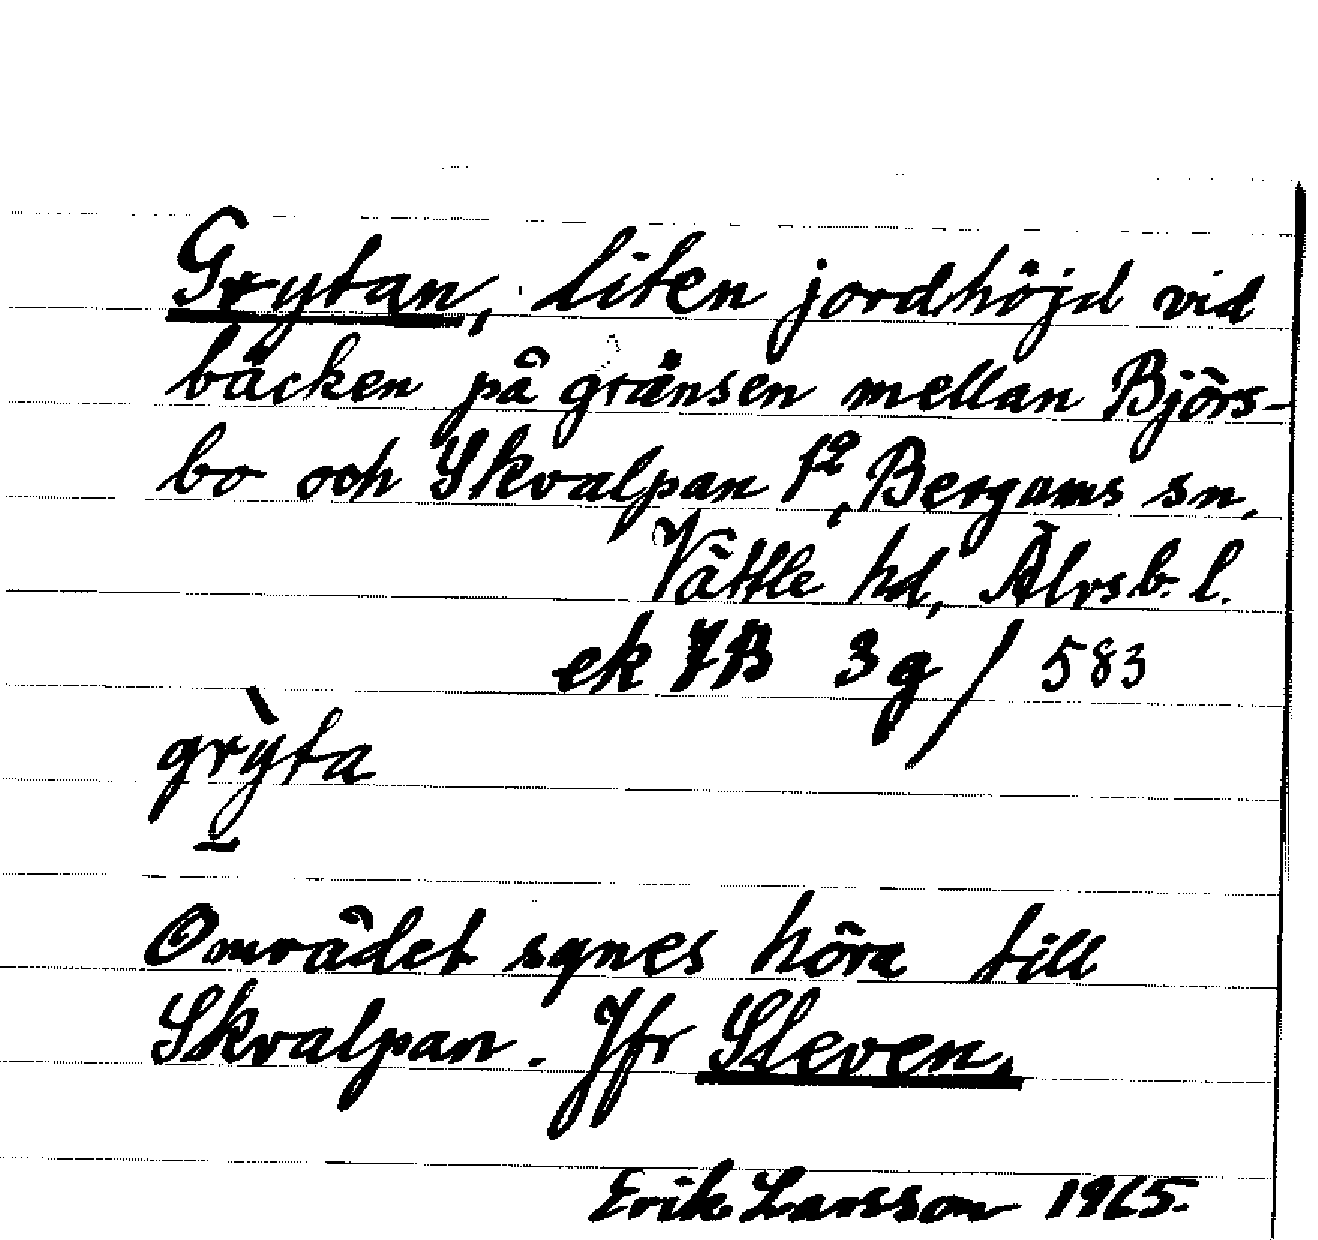 Grytan, liten jordhöjd vid
bäcken på gränsen mellan Björs-
bo och Skvalpan 1², Bergums sn,
Vättle hd, Älvsb. l.
ek 7B 3g / 583
grỳta
Området synes höra till
Skvalpan. Jfr Sleven.
Erik Larsson 1965.